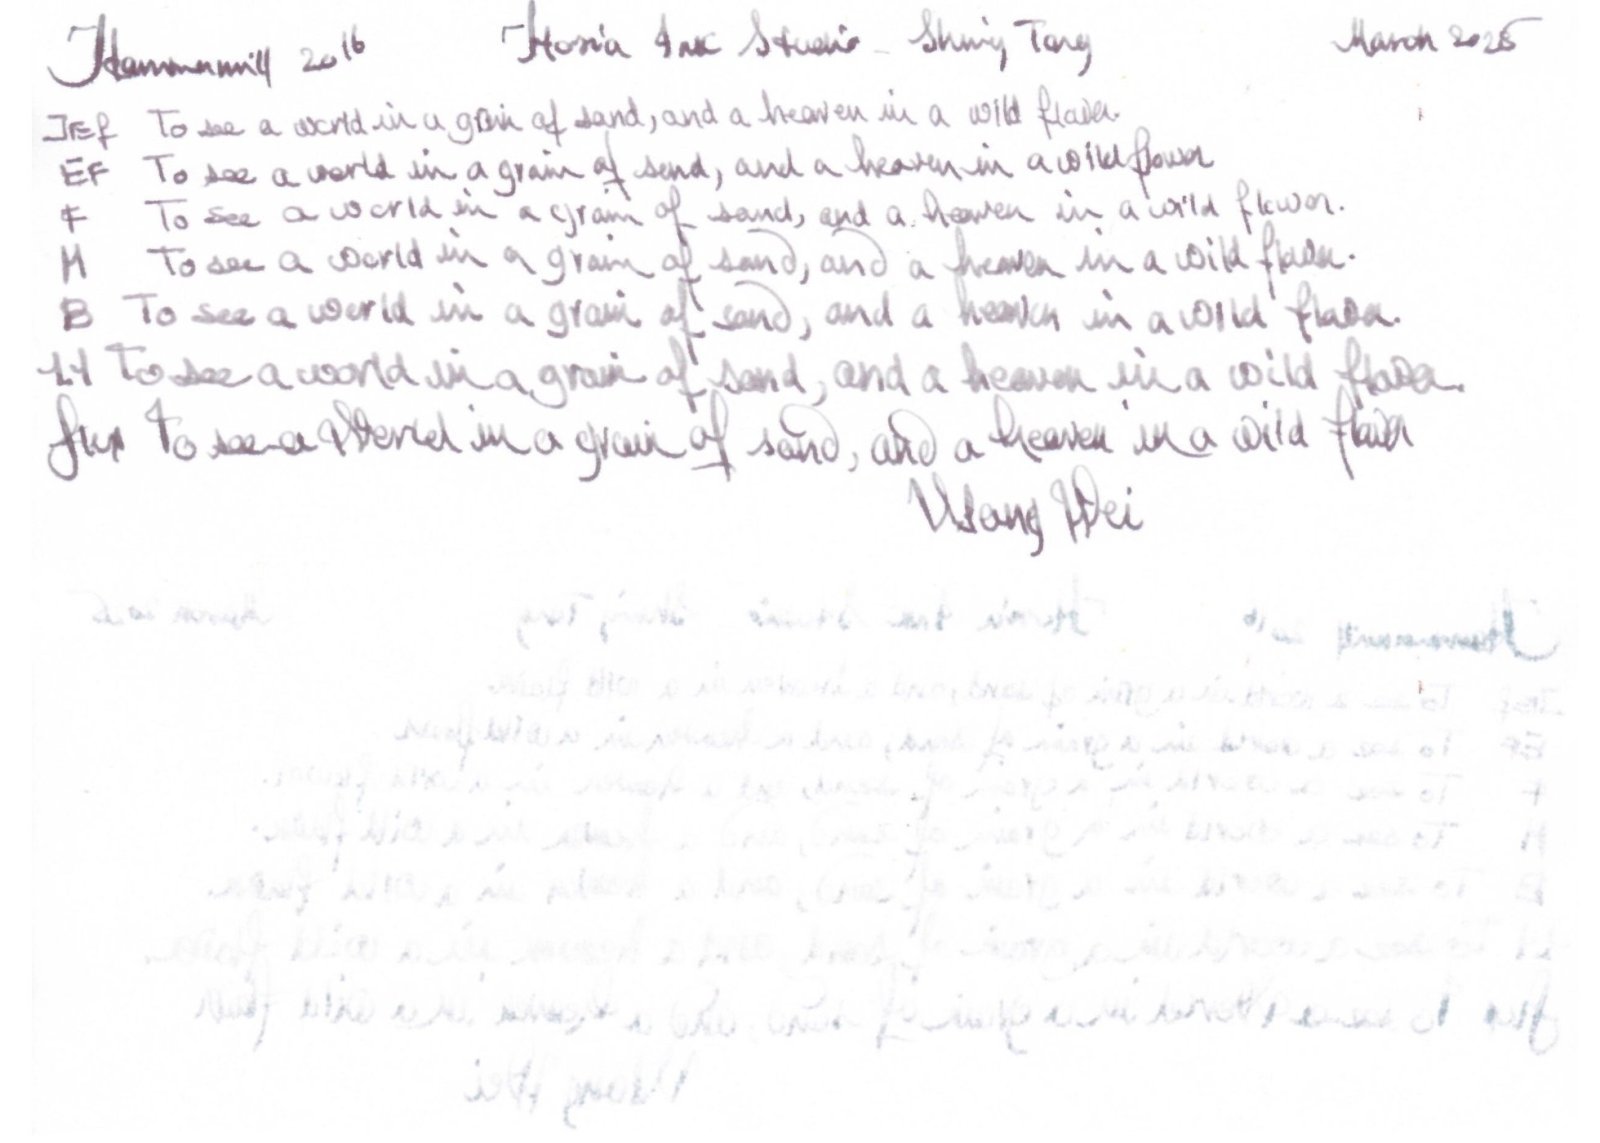 Hammermill 20lb Horia Ink Studio - Shiny Tang March 2025
JEf To see a world in a grain of sand, and a heaven in a wild flower.
EF To see a world in a grain of sand, and a heaven in a wild flower
F To see a world in a grain of sand, and a heaven in a wild flower.
M To see a world in a grain of sand, and a heaven in a wild flower.
B To see a world in a grain of sand, and a heaven in a wild flower.
1.1 To see a world in a grain of sand, and a heaven in a wild flower.
flex To see a World in a grain of sand, and a heaven in a wild flower
Wang Wei